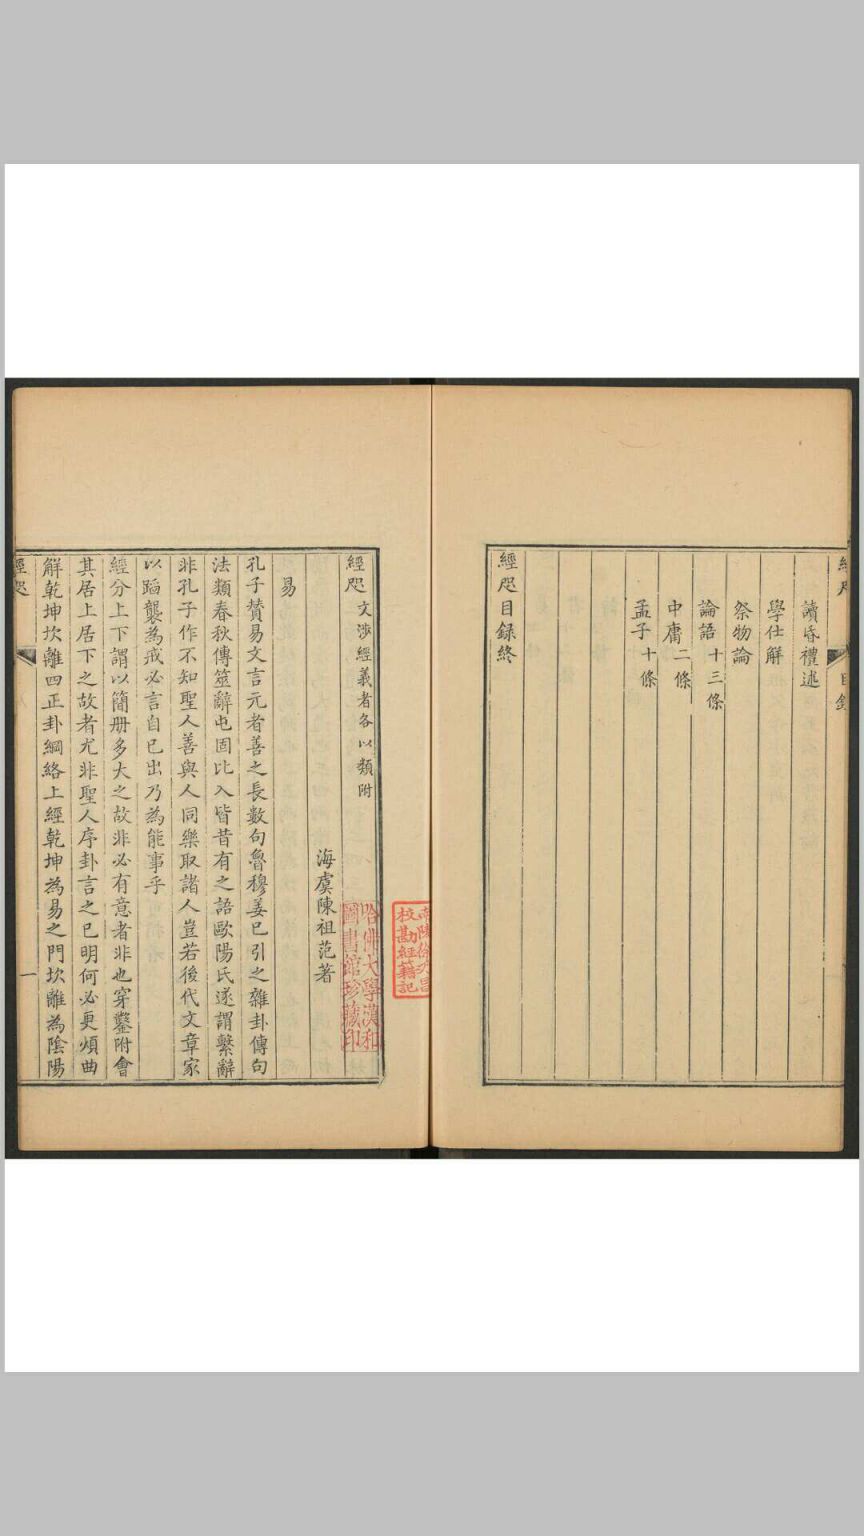 讀昏禮述
學仕解
祭物論
論語十三條
中庸二條
孟子十條
經咫目録終
經咫文渉經義者各以類附
海虞陳祖范著
易
孔子賛易文言元者善之長數句魯穆姜已引之雜卦傳句
法類春秋傳筮辭屯固比入皆昔有之語歐陽氏遂謂繫辭
非孔子作不知聖人善與人同樂取諸人豈若後代文章家
以蹈襲為戒必言自已出乃為能事乎
經分上下謂以簡册多大之故非必有意者非也穿鑿附會
其居上居下之故者尤非聖人序卦言之已明何必更煩曲
解乾坤坎離四正卦綱絡上經乾坤為易之門坎離為陰陽
經咫
一
哈佛大學漢和
圖書館珍藏印
校勘經籍記